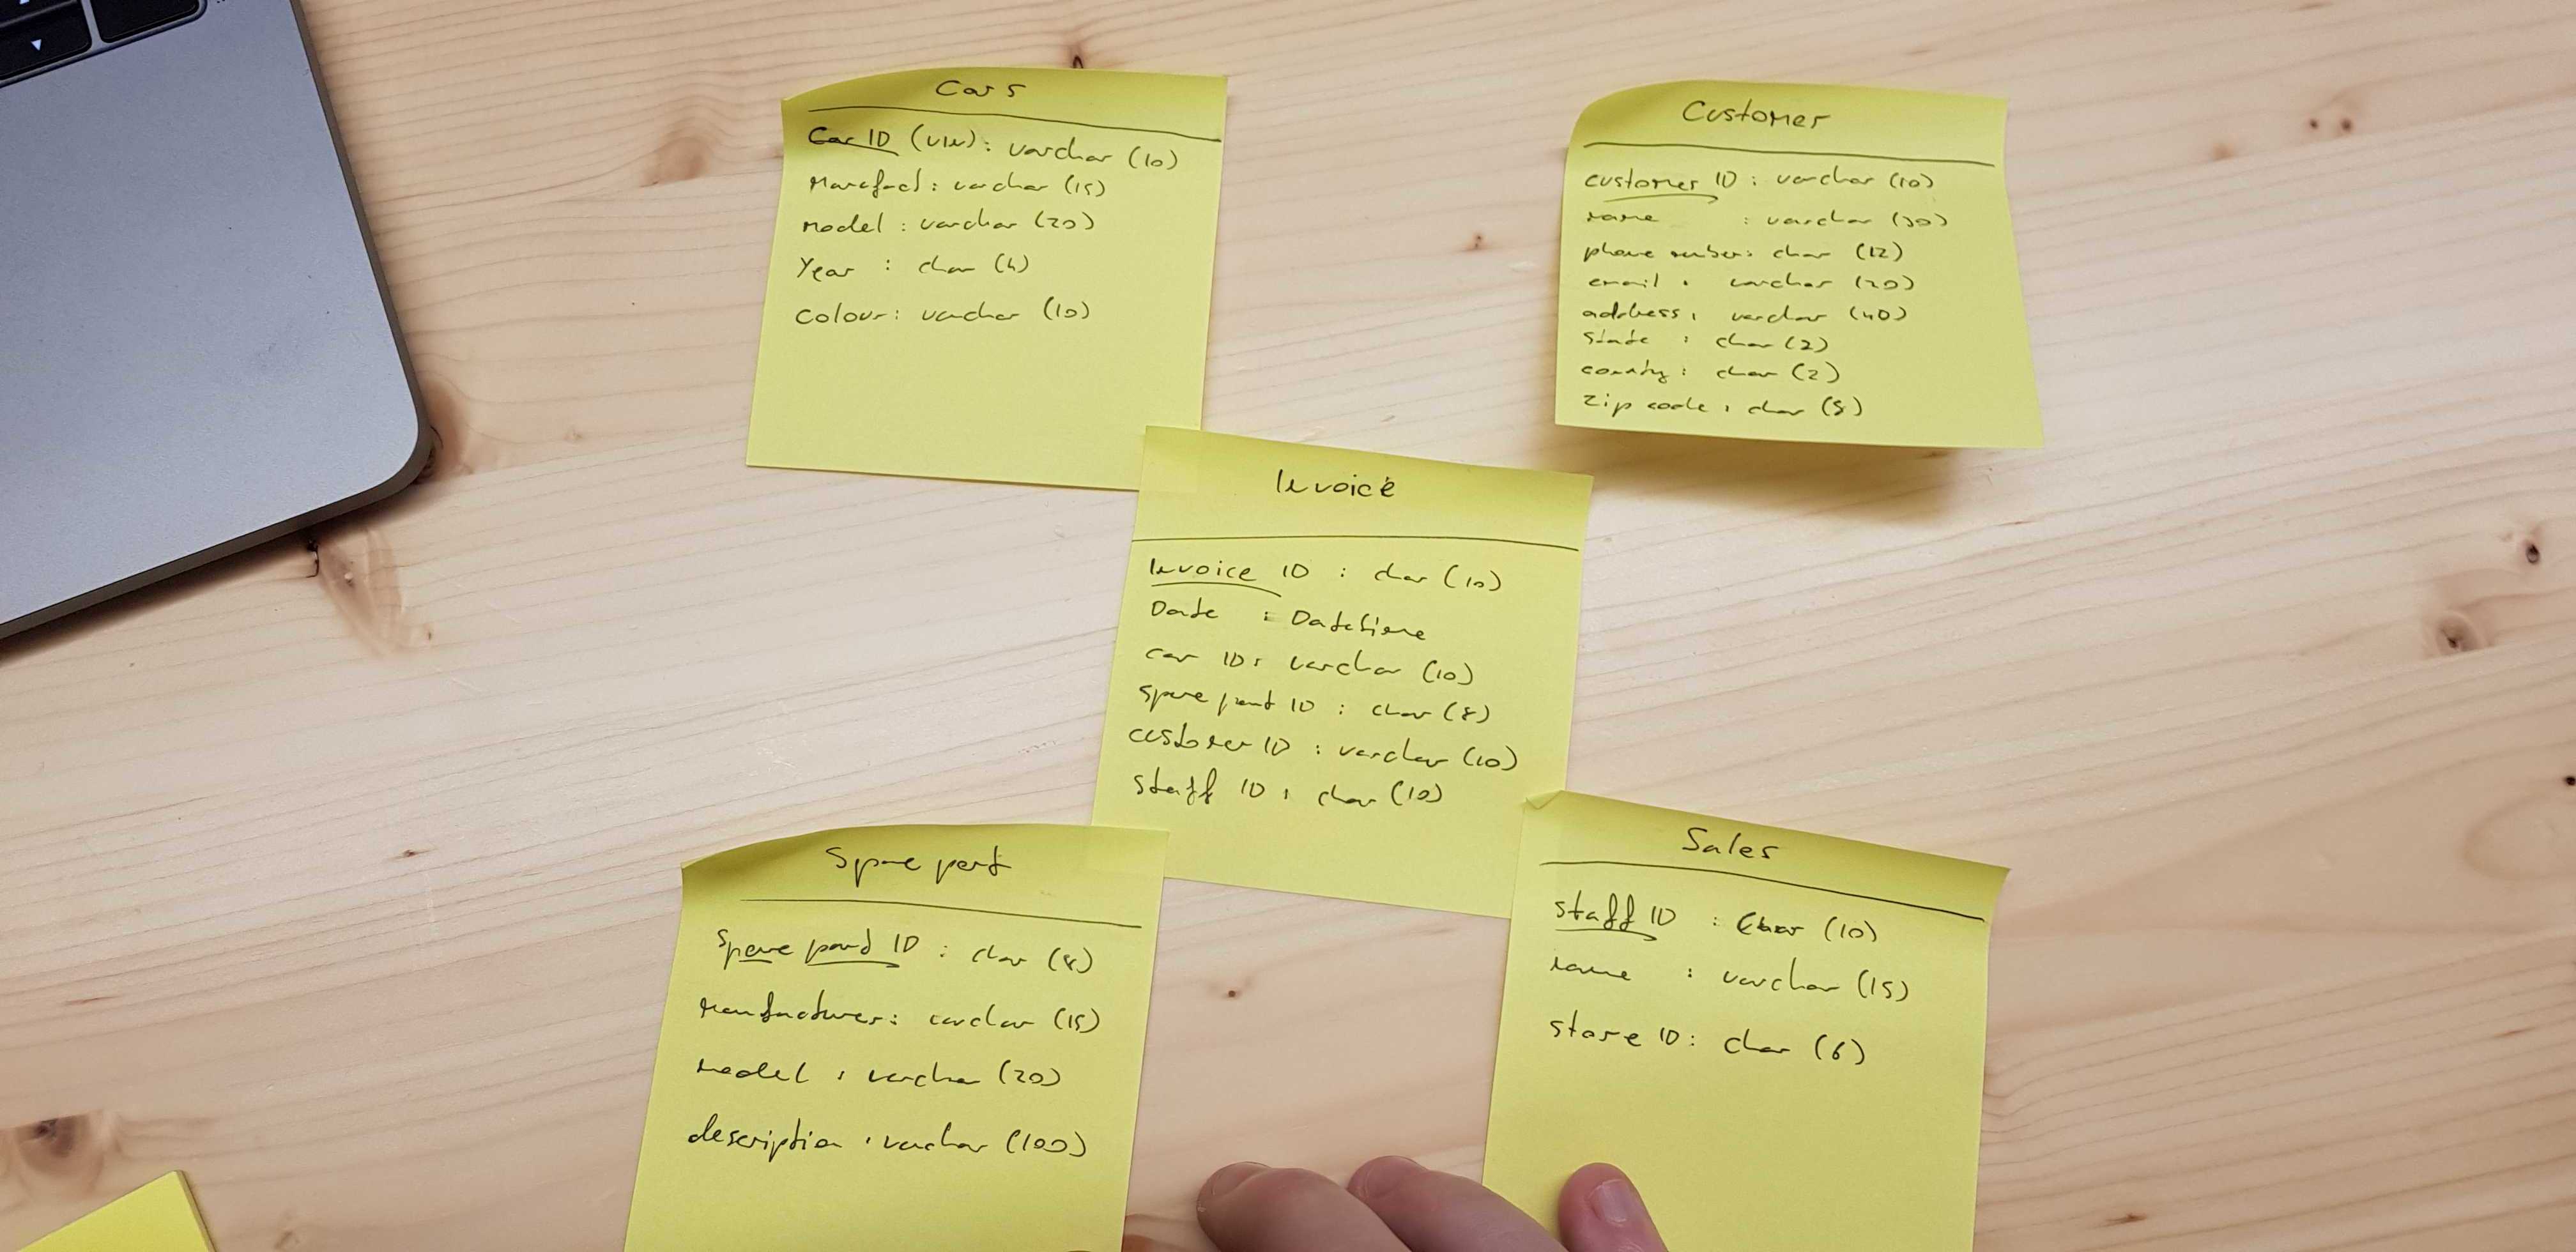 Cars
Car ID (VIN): varchar (10)
Manufact: varchar (15)
Model: varchar (20)
Year : char (4)
Colour: varchar (10)
Customer
customer ID : varchar (10)
name : varchar (30)
phone number: char (12)
email : varchar (20)
address: varchar (40)
state : char (2)
country: char (2)
zip code: char (5)
Invoice
Invoice ID : char (10)
Date : Datetime
car ID: varchar (10)
spare part ID : char (8)
customer ID : varchar (10)
staff ID : char (10)
Spare part
Spare part ID : char (8)
Manufacturer: varchar (15)
model : varchar (20)
description : varchar (100)
Sales
staff ID : char (10)
name : varchar (15)
store ID: char (6)